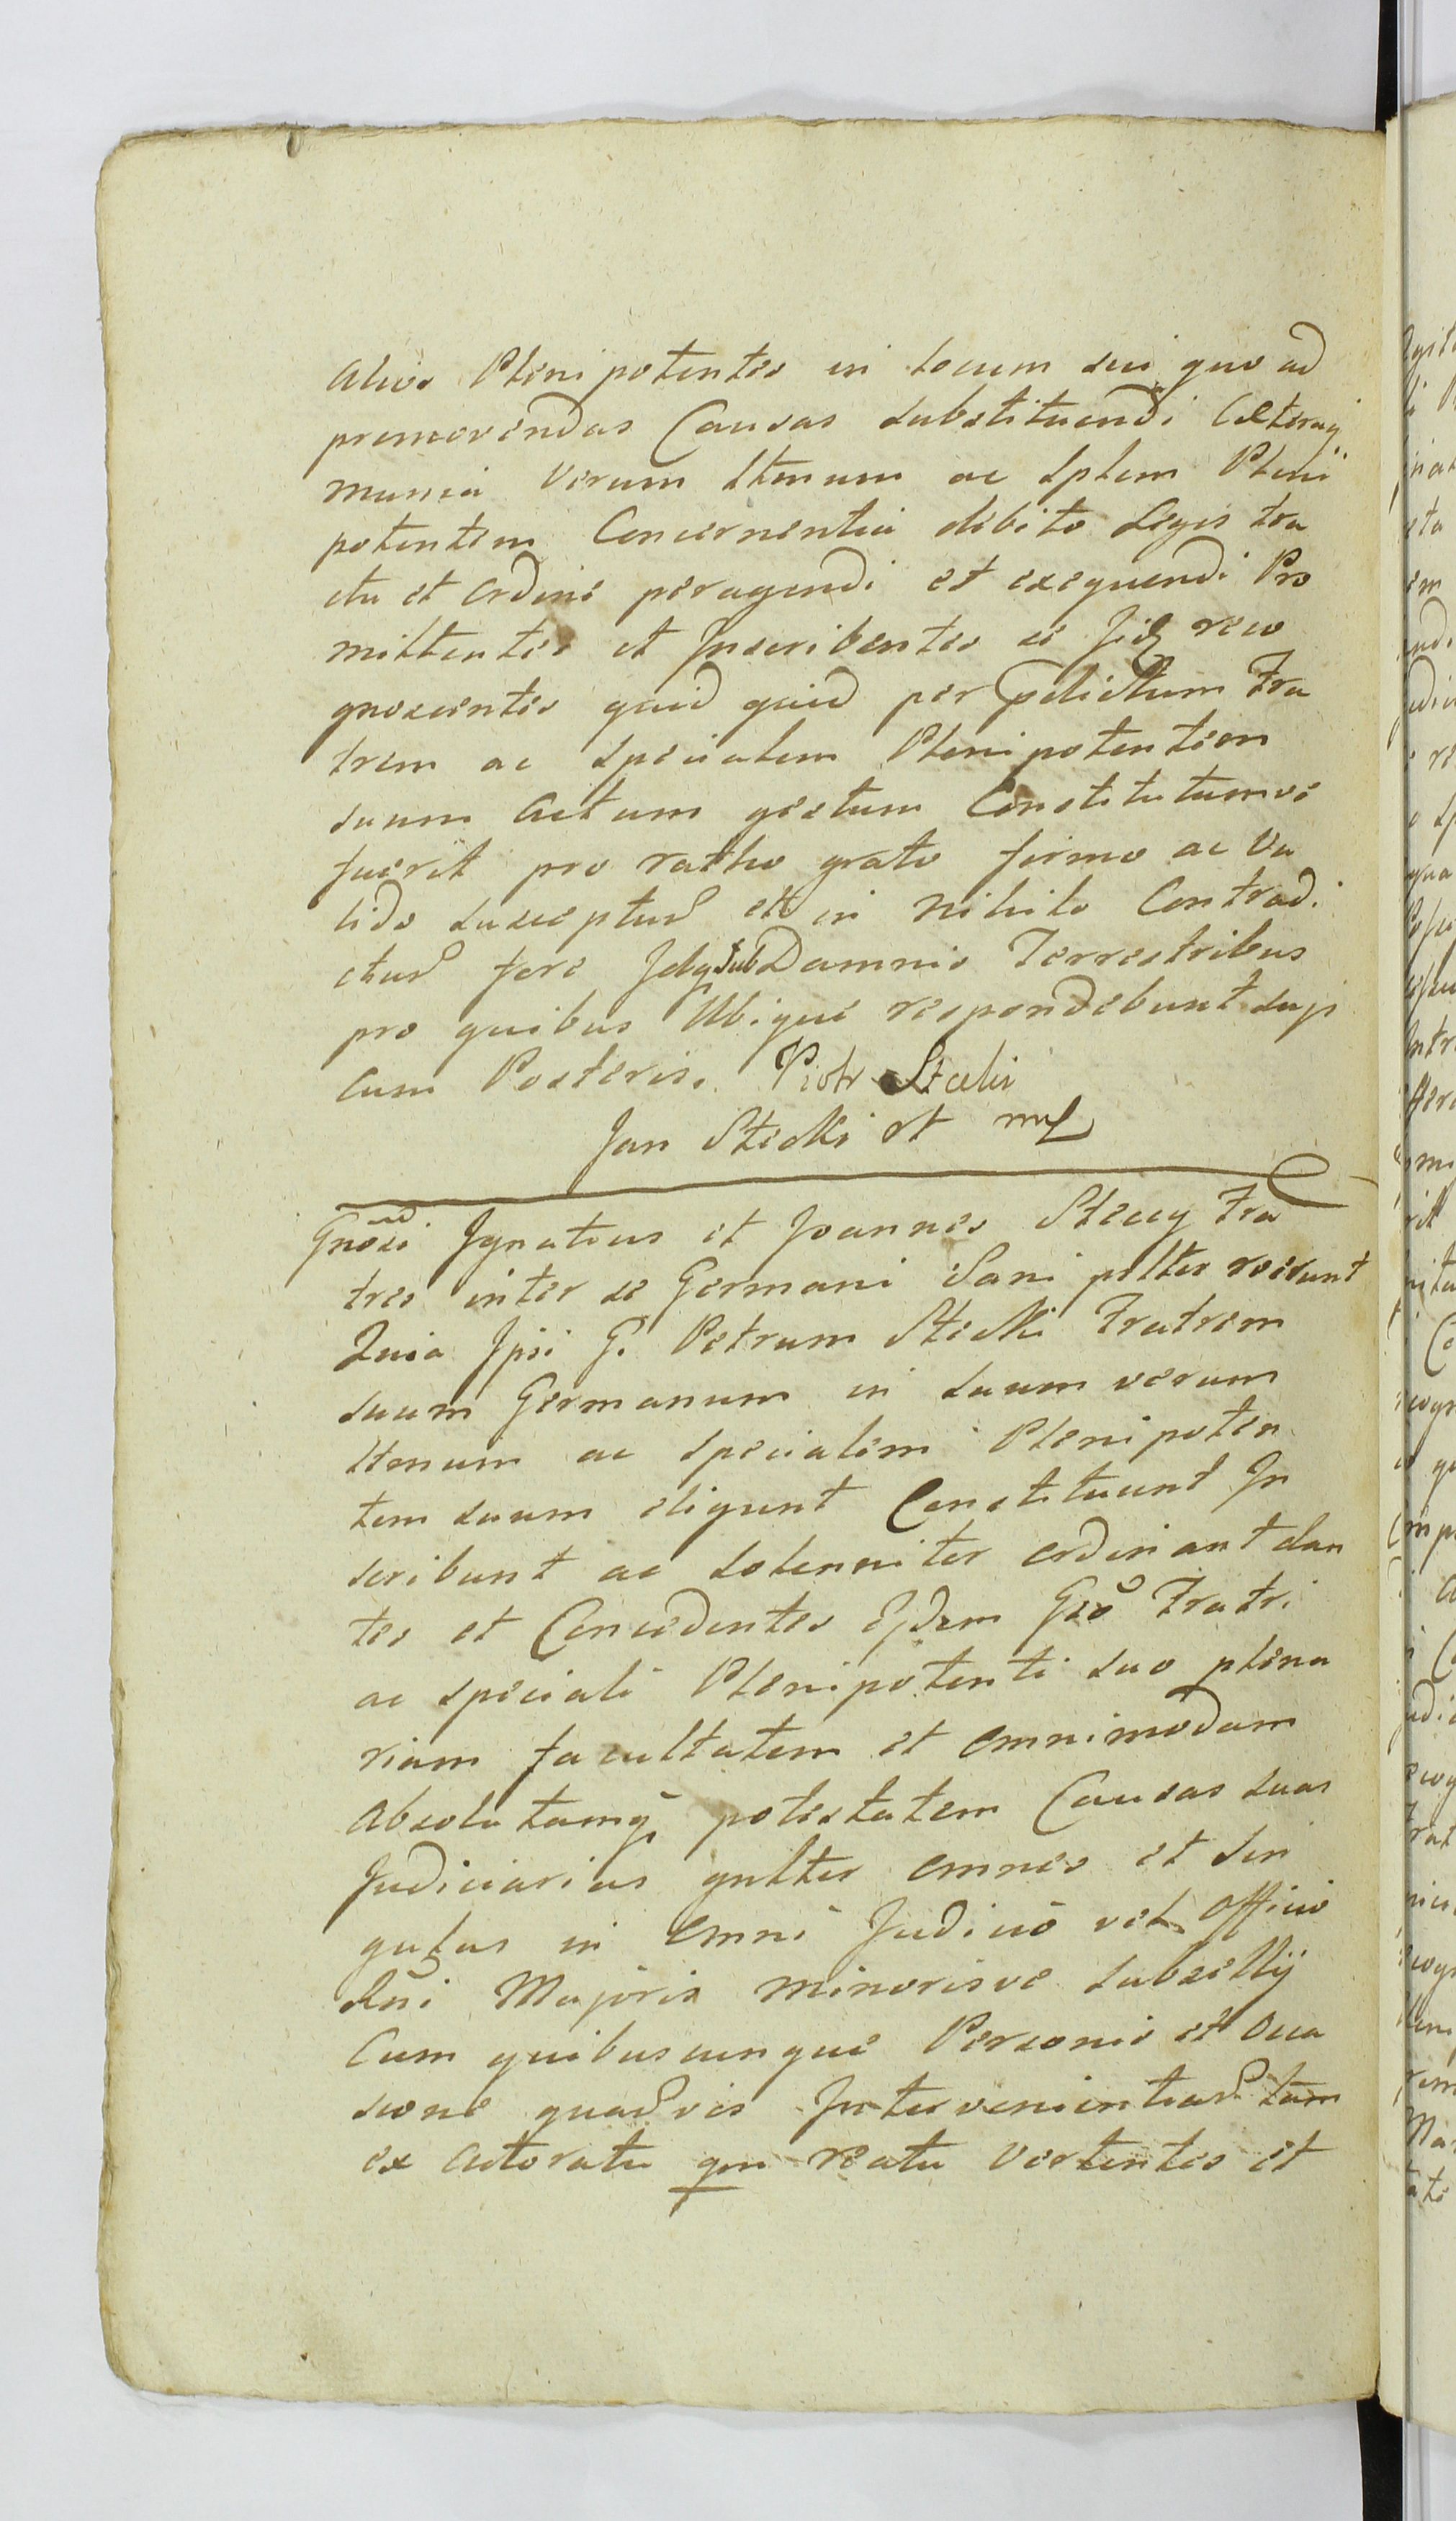 alios Plenipotentes in locum sui quo ad
promovendas Causas substituendi Cæteraq
munia Verum Ltmum ac Splem Pleni
potentem Concernentia debito Legis tra
ctu et ordine peragendi et exequendi Pro
mittentes et Inscribentes se reco
gnoscentes quid quid per pdictum Fra
trem ac Specialem Plenipotentem
suum actum gestum Constitutumve
fuerit pro ratho grato firmo ac Va
lido suscepturos et in nihilo Contradi
cturos fore Idq sub Damnis Terrestribus
pro quibus Ubique respondebunt
cum Posteris. Piotr Stecki
Jan Stecki st mp
Gnosi Ignatius et Joannes Steccy Fra
tres inter se Germani Sani pltter roerunt
Quia Ipsi G. Petrum Stecki Fratrem
suum Germanum in suum verum
ltmum ac specialem Plenipoten
tem suum eligunt Constituunt In
scribunt ac solenniter ordinant dan
tes et Concedentes Ejdem Gso Fratri
ac speciali Plenipotenti suo plena
riam facultatem et omnimodam
Absolutamq potestatem Causas suas
Judiciarias gnltter omnes et sin
gulas in omni Judicio vel officio
Rni Majoris minorisve subsellij
Cum quibuscunque Personis et occa
sione quarvis Intervenientiarum tam
ex actoratu qm reatu Vertentes et